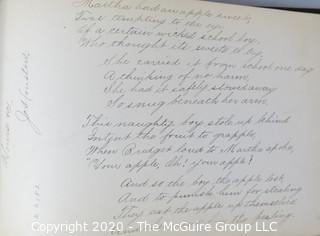 Martha had an apple sweet,
Twas tempting to the eye,
Of a certain wicked school boy,
Who thought it's sweets to try.
She carried it from school one day
A thinking of no harm,
She had it safely stowed away
So snug beneath her arm.
This naughty boy stole up behind
Intent the fruit to grapple,
When Bridget loud to Martha spoke,
"Your apple, Oh! your apple?
And so the boy the apple lost,
And to punish him for stealing
They eat the apple up themselves
the pealing.
Copyright © 2020 - Orbanville.com